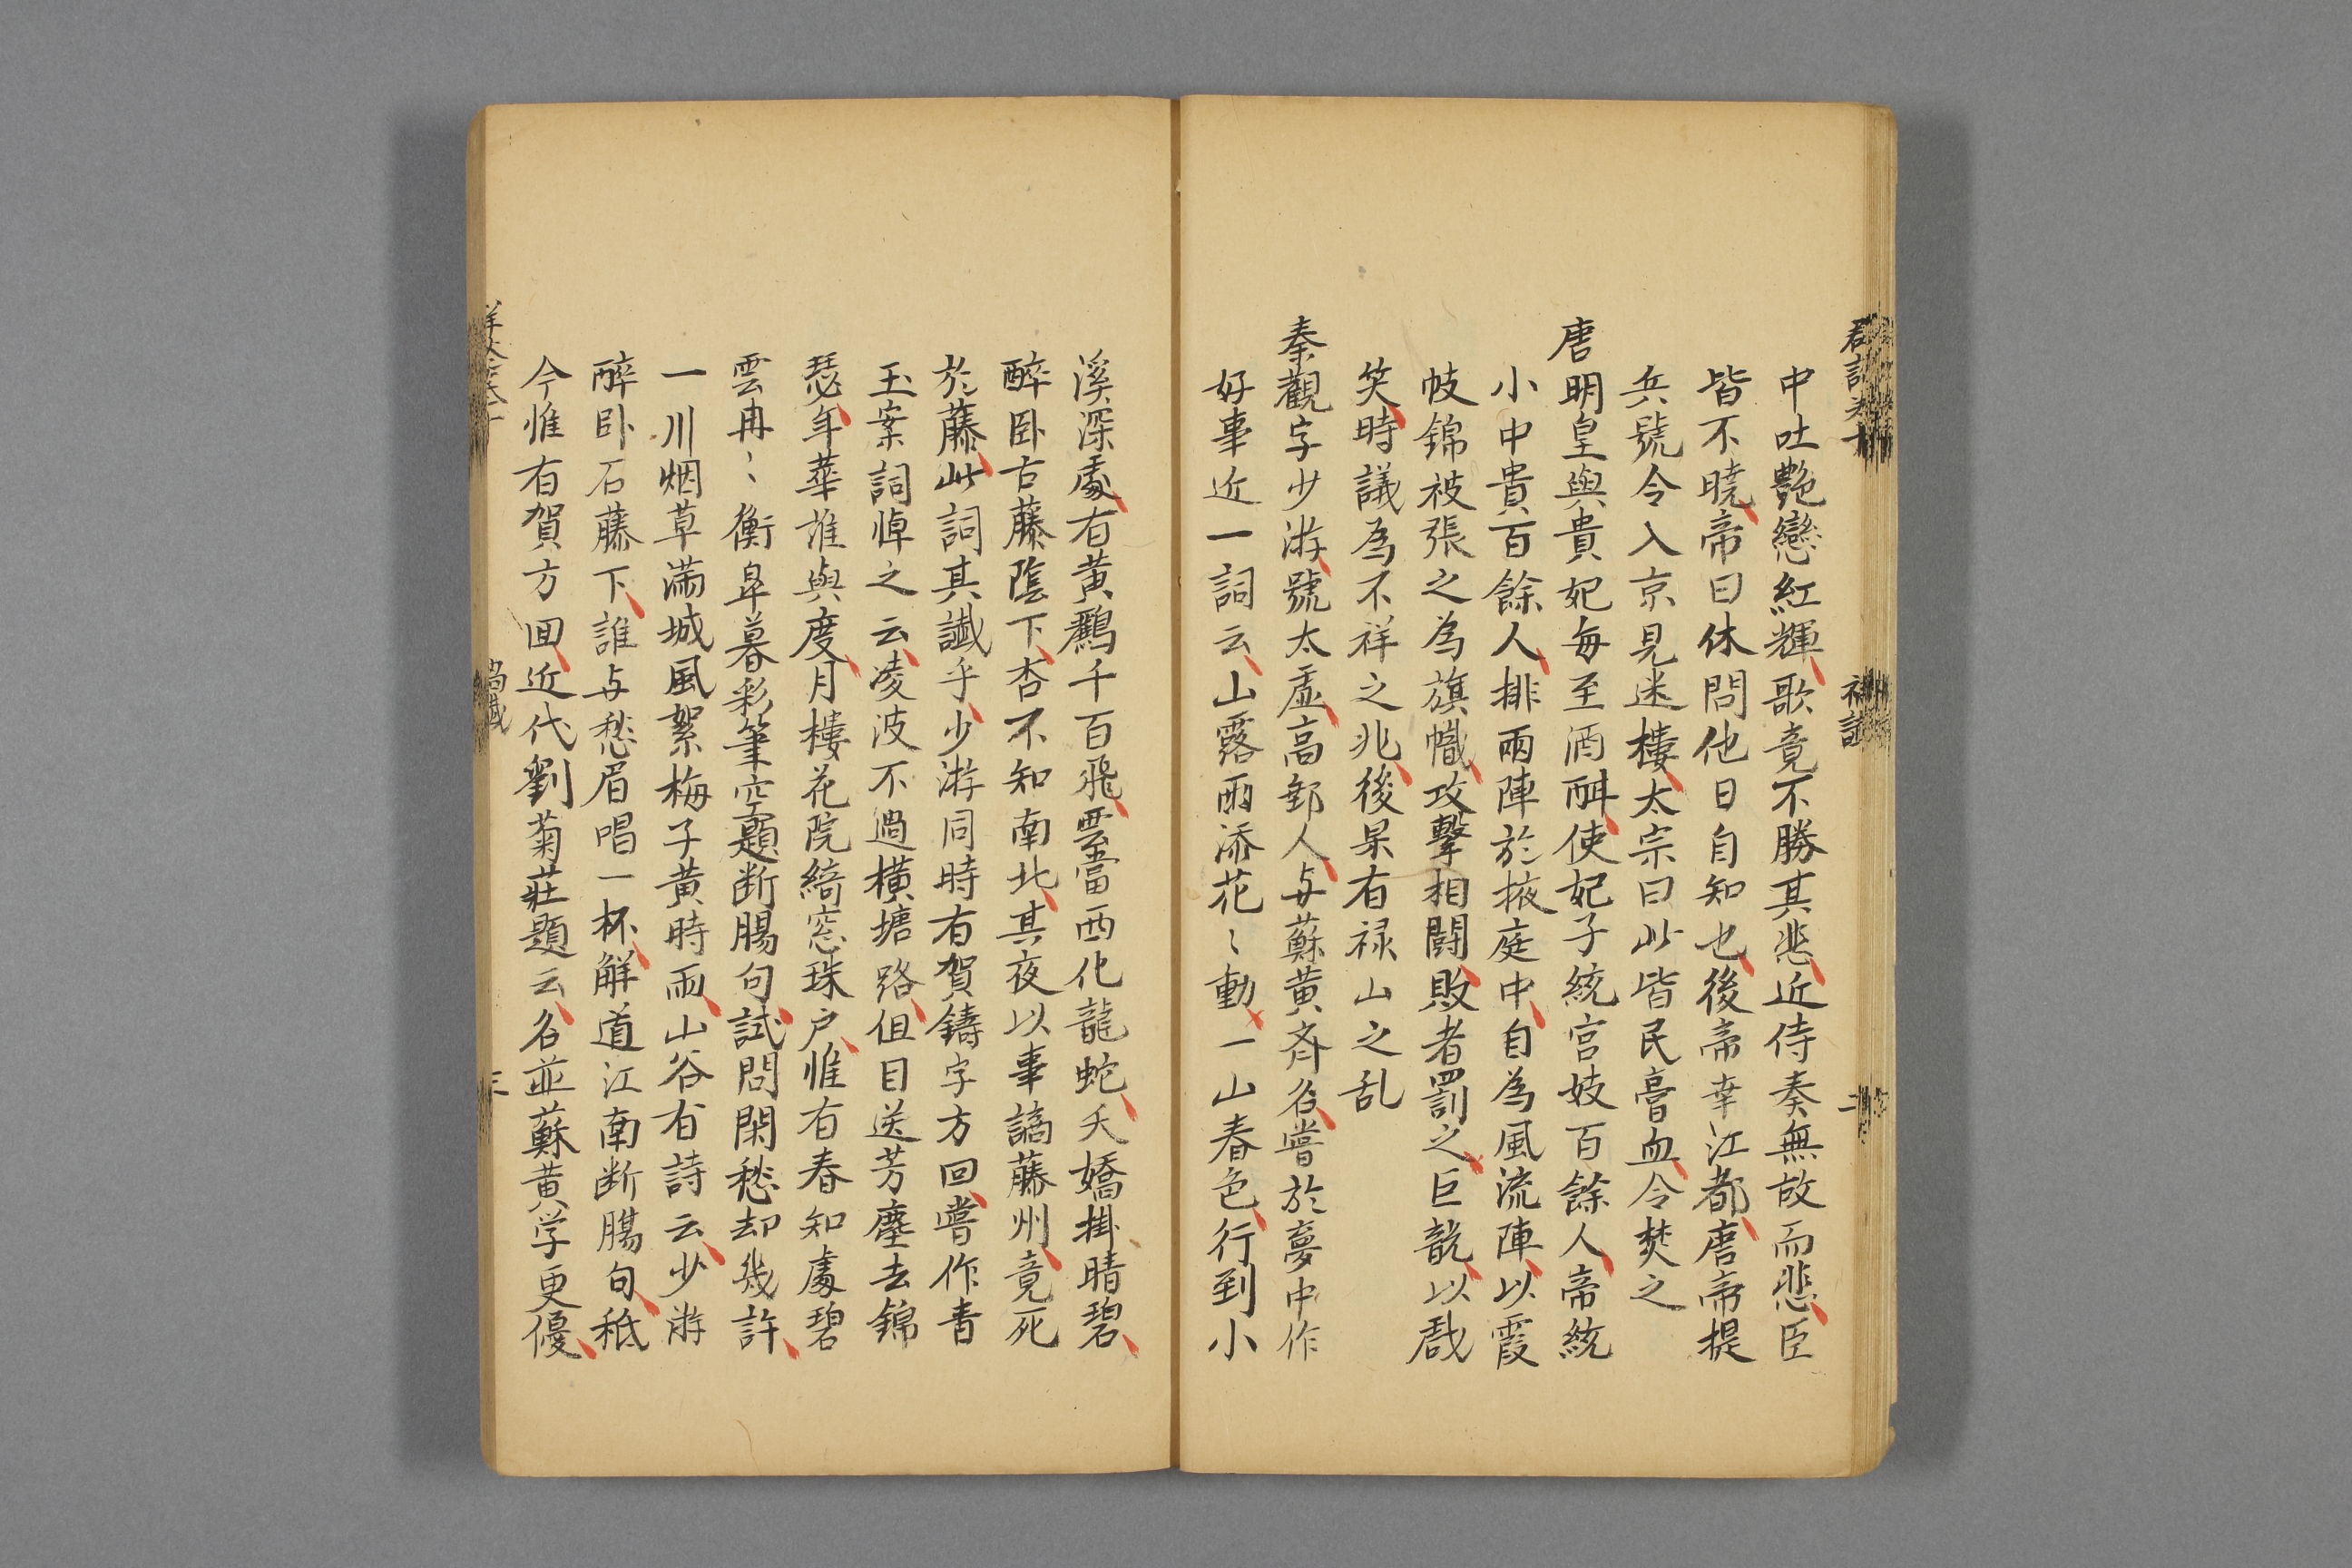 中吐艷戀紅輝歌竟不勝其悲近侍奏無故而悲臣
皆不曉帝曰休問他日自知也後帝幸江都唐帝提
兵號令入京見迷樓太宗曰此皆民膏血令焚之
唐明皇與貴妃每至酒酣使妃子統宮妓百餘人帝統
小中貴百餘人排兩陣於掖庭中自為風流陣以霞
帔錦被張之為旗幟攻擊相鬪敗者罰之巨觥以戲
笑時議為不祥之兆後果有禄山之乱
秦觀字少游號太虛高郵人与蘇黄齊名嘗於夢中作
好事近一詞云山露雨添花〻動一山春色行到小
溪深處有黄鸝千百飛雲當面化龍蛇夭嬌掛晴碧
醉臥古藤陰下杳不知南北其夜以事謫藤州竟死
於藤此詞其讖乎少游同時有賀鑄字方回嘗作青
玉案詞悼之云凌波不過橫塘路但目送芳塵去錦
瑟年華誰與度月樓花院綺窓珠户惟有春知處碧
雲冉〻衡皐暮彩筆空題断腸句試問閑愁却幾許
一川烟草滿城風絮梅子黄時雨山谷有詩云少游
醉卧石藤下誰与愁眉唱一杯解道江南断腸句秪
今惟有賀方回近代劉菊莊題云名並蘇黄学更優